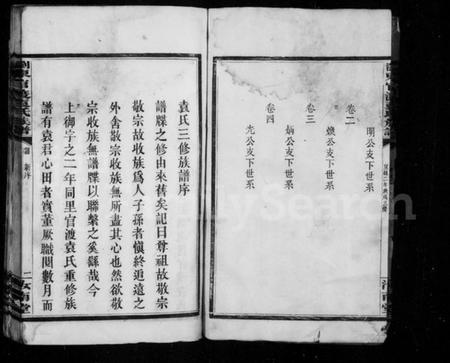 閏公支下世系
卷二
煥公支下世系
卷三
炳公支下世系
卷四
允公支下世系
汝南堂
袁氏三修族譜序
譜牒之修由來舊矣記曰尊祖故敬宗
敬宗故收族爲人子孫者愼終追遠之
外舍敬宗收族無所盡其心也然欲敬
宗收族無譜牒以聯繫之奚繇哉今
上御宇之二年同里官渡袁氏重修族
譜有袁君心田者實董厥職閱數月而
袁氏族譜
二
汝南堂
FamilySearch